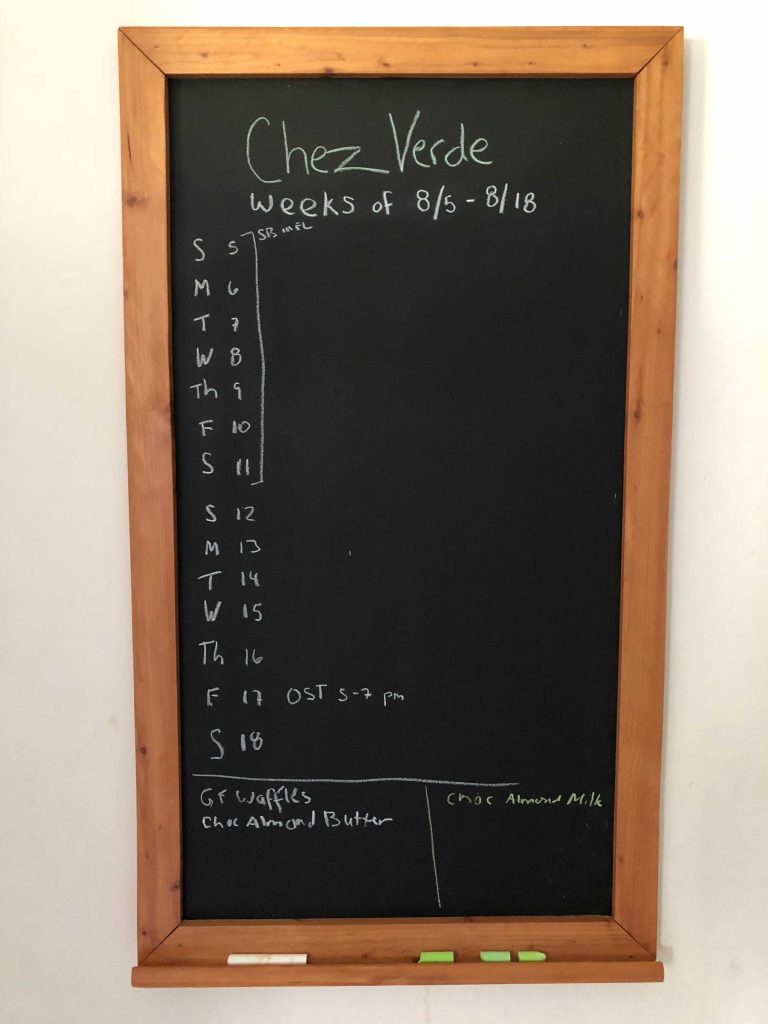 Chez Verde
Weeks of 8/5 - 8/18
SB in FL
S 5
M 6
T 7
W 8
Th 9
F 10
S 11
S 12
M 13
T 14
W 15
Th 16
F 17 OST 5-7 pm
S 18
GF Waffles
Choc Almond Butter
Choc Almond Milk